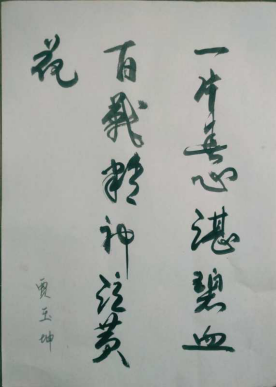 一片心湛碧血
百战精神黄
花
贾玉坤